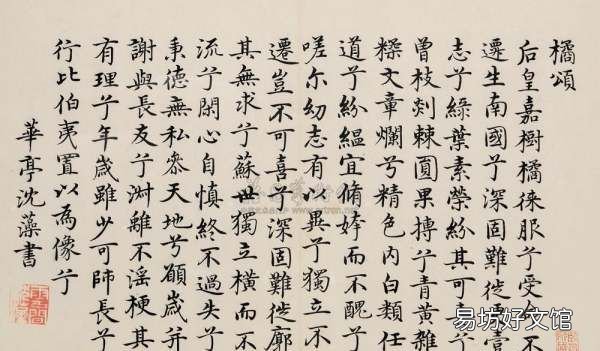 橘頌
后皇嘉樹橘徠服兮受命不
遷生南國兮深固難徙更壹
志兮綠葉素榮紛其可喜兮
曾枝剡棘圓果摶兮青黃雜
糅文章爛兮精色內白類任
道兮紛緼宜脩姱而不醜兮
嗟尔幼志有以異兮獨立不
遷豈不可喜兮深固難徙廓
其無求兮蘇世獨立橫而不
流兮閑心自慎終不過失兮
秉德無私叅天地兮願歲并
謝與長友兮淑離不滛梗其
有理兮年歲雖少可師長兮
行比伯夷置以為像兮
華亭沈藻書
易坊好文馆